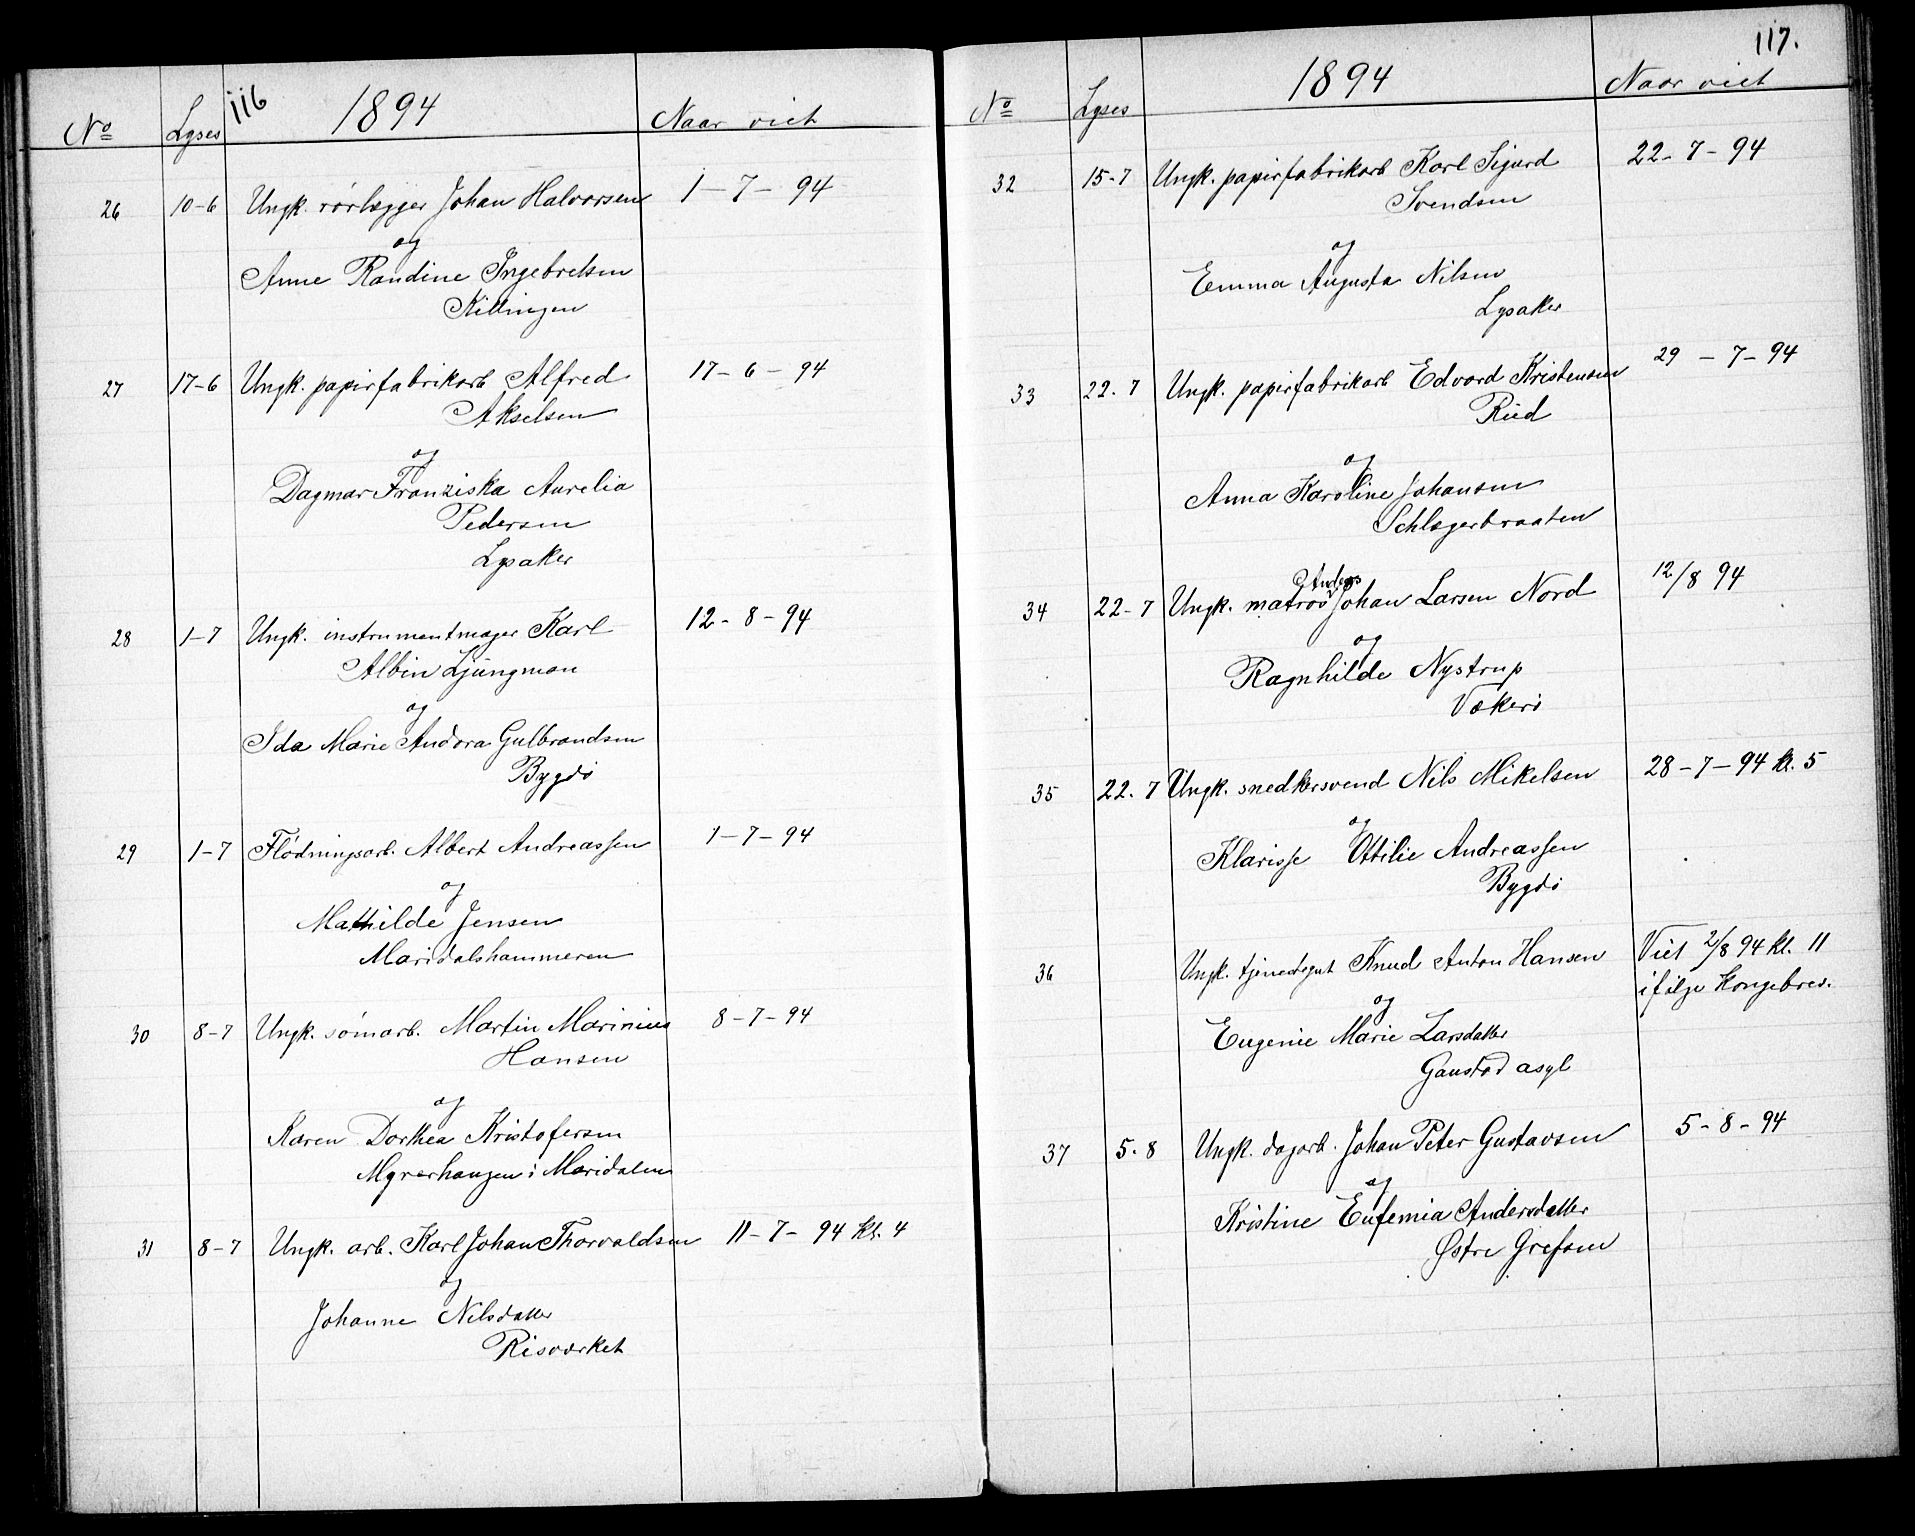 116
1894
No Lyses Naar viet
26 10-6 Ungk. rørlægger Johan Halvorsen 1-7-94
og
Anne Randine Ingebretsen
Killingen
27 17-6 Ungk. papirfabrikarb Alfred 17-6-94
Akselsen
og
Dagmar Franziska Aurelia
Pedersen
Lysaker
28 1-7 Ungk. instrumentmager Karl 12-8-94
Albin Ljungman
og
Ida Marie Andora Gulbrandsen
Bygdö
29 1-7 Flödningsarb. Albert Andreassen 1-7-94
og
Mathilde Jensen
Maridalshammeren
30 8-7 Ungk. sömarb. Martin Marinius 8-7-94
Hansen
og
Karen Dorthea Kristofersen
Myrerhaugen i Maridalen
31 8-7 Ungk. arb. Karl Johan Thorvaldsen 11-7-94 kl. 4
og
Johanne Nilsdatter
Risværket
117.
1894
No Lyses Naar viet
32 15-7 Ungk. papirfabrikarb Karl Sigurd 22-7-94
Svendsen
og
Emma Augusta Nilsen
Lysaker
33 22.7 Ungk. papirfabrikarb Edvard Kristensen 29-7-94
Rud
og
Anna Karoline Johansen
Schlægerbraaten
Anders
34 22-7 Ungk. matros Johan Larsen Nord 12/8 94
og
Ragnhilde Nystrup
Vækerö
35 22.7 Ungk. snedkersvend Nils Mikelsen 28-7-94 kl. 5
og
Klarisse Ottilie Andreassen
Bygdö
36 Ungk. tjenestegut Knud Anton Hansen Viet 2/8 94 kl. 11
ifölge Kongebrev.
og
Eugenie Marie Larsdatter
Gaustad asyl
37 5.8 Ungk. dagarb. Johan Peter Gustavsen 5-8-94
og
Kristine Eufemia Andersdatter
Østre Grefsen